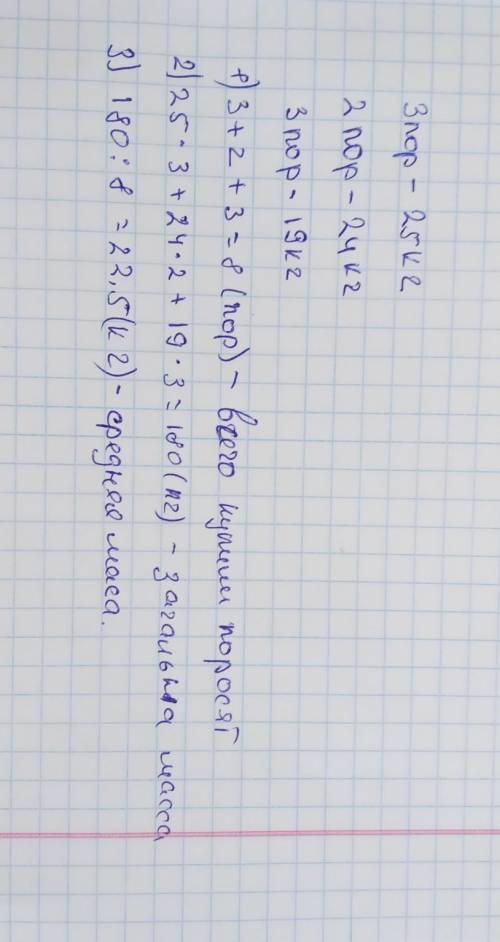 3 пор - 25кг
2 пор - 24кг
3 пор - 19кг
1) 3 + 2 + 3 = 8 (пор) - всего купили поросят
2) 25 · 3 + 24 · 2 + 19 · 3 = 180 (кг) - загальна масса
3) 180 : 8 = 22,5 (кг) - средняя маса.